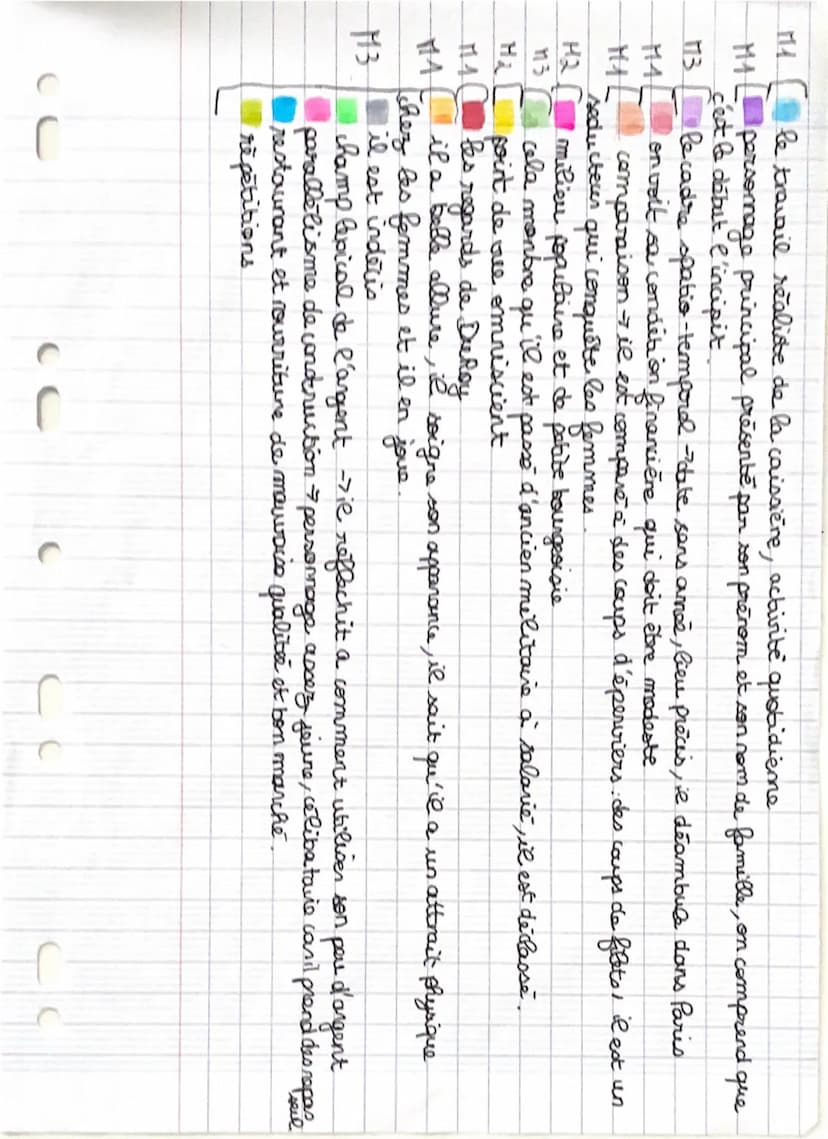 M1 le travail réaliste de la caissière, activité quotidiène
M1 personnage principal présenté par son prénom et son nom de famille, on comprend que
c'est le début l'incipit.
M3 le cadre spatio-temporel → date sans année, lieu précis, il déambule dans Paris
M1 on voit sa condition financière qui doit être modeste
M1 comparaison → il est comparé à des coups d'éperviers : des coups de filets, il est un
séducteur qui conquête les femmes.
M2 milieu populaire et de petite bourgeoisie
M3 cela montre qu'il est passé d'ancien militaire à salarié, il est déclassé.
M2 point de vue omniscient
M1 les regards de DuRoy
M1 il a belle allure, il soigne son apparance, il sait qu'il a un attrait physique
chez les femmes et il en joue.
M3 il est indécis
champ lexical de l'argent → il réflechit a comment utiliser son peu d'argent
parallélisme de construction → personnage assez jeune, célibataire car il prend des repas
seul
restaurant et nourriture de mauvaise qualité et bon marché.
répétitions